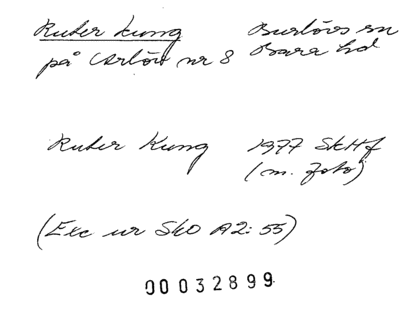 Ruter Kung Burlövs sn
på Arlöv nr 8 Bara hd
Ruter Kung 1977 SkHf
(m. foto)
(Exc ur SkO A2:55)
00032899